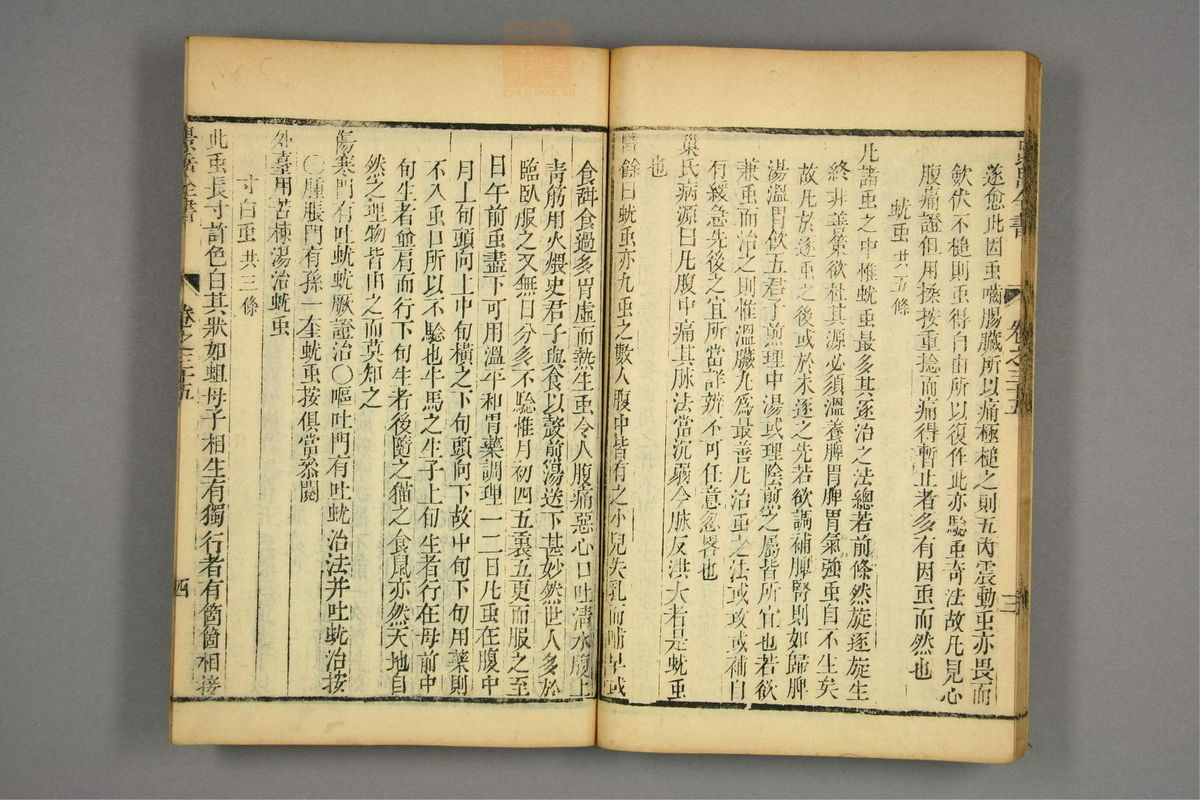 遂愈此因䖝嚙腸臟所以痛極槌之則五內震動䖝亦畏而
歛伏不槌則䖝得自由所以復作此亦驗䖝奇法故凡見心
腹痛證但用揉按重捻而痛得暫止者多有因䖝而然也
蚘䖝 共五條
凡諸䖝之中惟蚘䖝最多其逐治之法總若前條然旋逐旋生
終非善策欲杜其源必須溫養脾胃脾胃氣強䖝自不生矣
故凡於逐䖝之後或於未逐之先若欲調補脾腎則如歸脾
湯溫胃飲五君子煎理中湯或理陰煎之屬皆所宜也若欲
兼䖝而治之則惟溫臟丸爲最善凡治䖝之法或攻或補自
有緩急先後之宜所當詳辨不可任意忽畧也
巢氏病源曰凡腹中痛其脉法當沉弱今脉反洪大者是蚘䖝
也
醫餘曰蚘䖝亦九䖝之數人腹中皆有之小兒失乳而哺早或
食甜食過多胃虛而熱生䖝令人腹痛惡心口吐清水腹上
青筋用火煨史君子與食以殼煎湯送下甚妙然世人多於
臨臥服之又無日分多不驗惟月初四五裏五更而服之至
日午前䖝盡下可用溫平和胃藥調理一二日凡䖝在腹中
月上旬頭向上中旬橫之下旬頭向下故中旬下旬用藥則
不入䖝口所以不驗也牛馬之生子上旬生者行在母前中
旬生者並肩而行下旬生者後隨之猫之食鼠亦然天地自
然之理物皆由之而莫知之
傷寒門有吐蚘蚘厥證治〇嘔吐門有吐蚘治法并吐蚘治按
〇腫脹門有孫一奎蚘䖝按俱當叅閱
外臺用苦楝湯治蚘䖝
寸白䖝 共三條
此䖝長寸許色白其狀如蛆母子相生有獨行者有箇箇相接
卷之三十五
四